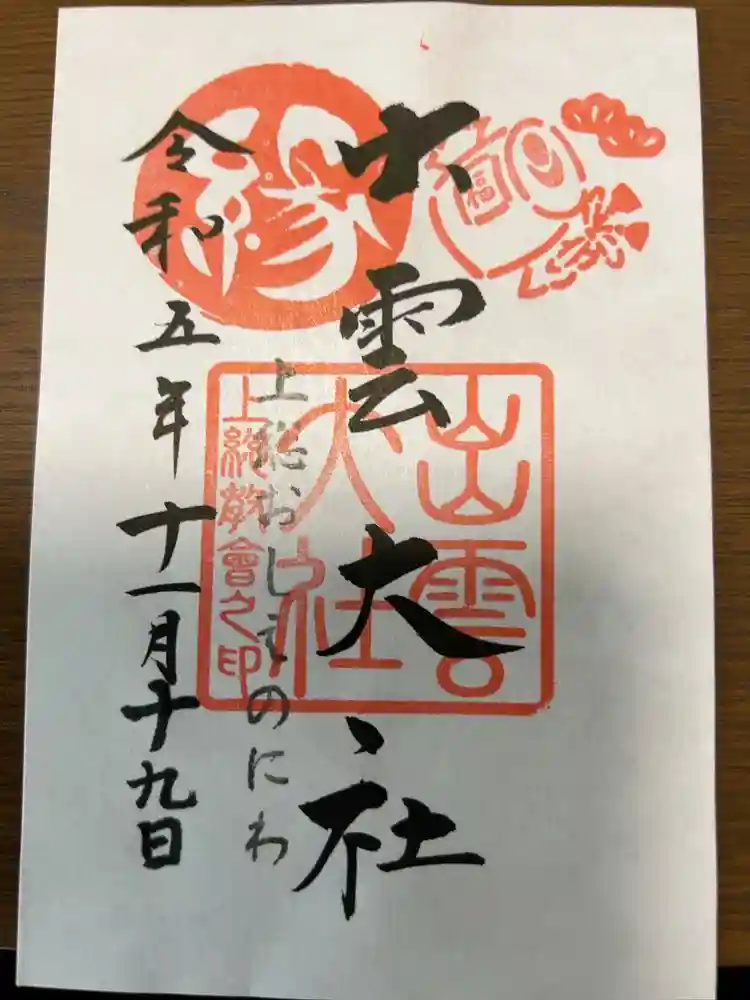 出雲大社
上総おしえのにわ
令和五年十一月十九日
縁
福
出雲
大社
上総教會之印